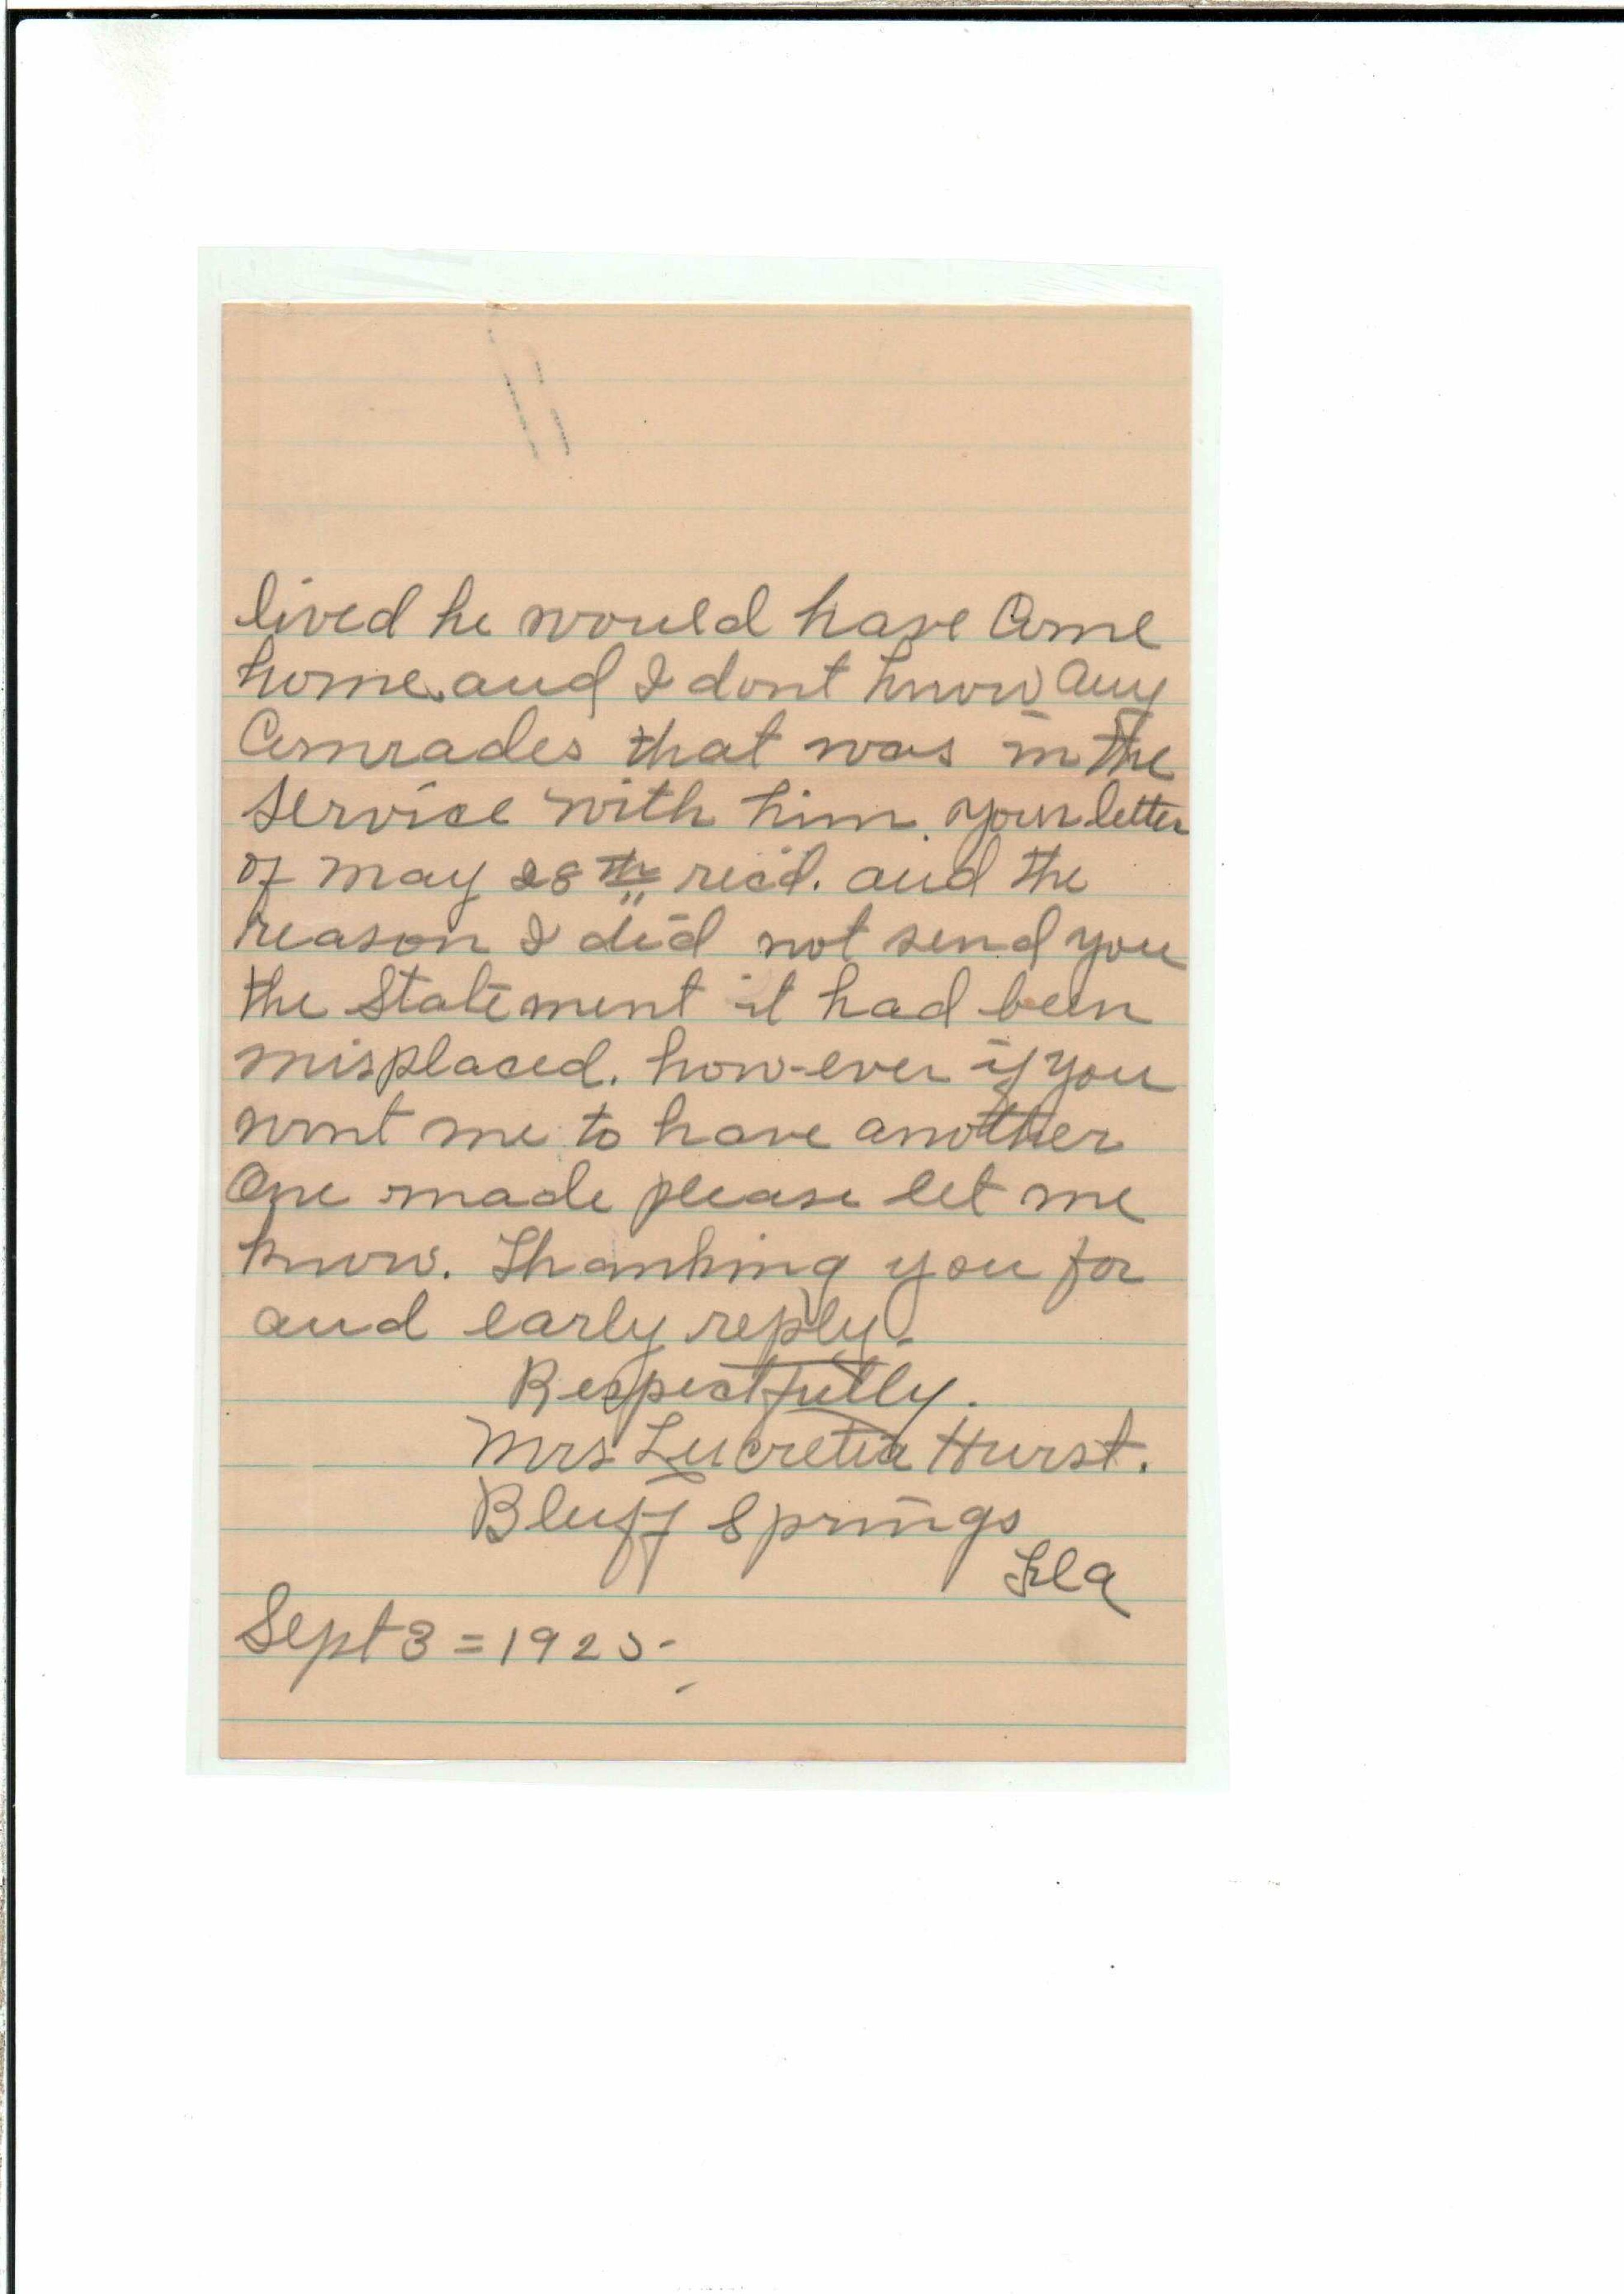 lived he would have Come
home. and I dont know any
Comrades that was in the
service with him. your letter
of may 28th recd. and the
reason I did not send you
the Statement it had been
misplaced. how-ever if you
wont me to have another
One made please let me
know. Thanking you for
and early reply.
Respectfully.
Mrs Lucretia Hurst.
Bluff Springs
Fla
Sept 3 = 1925-